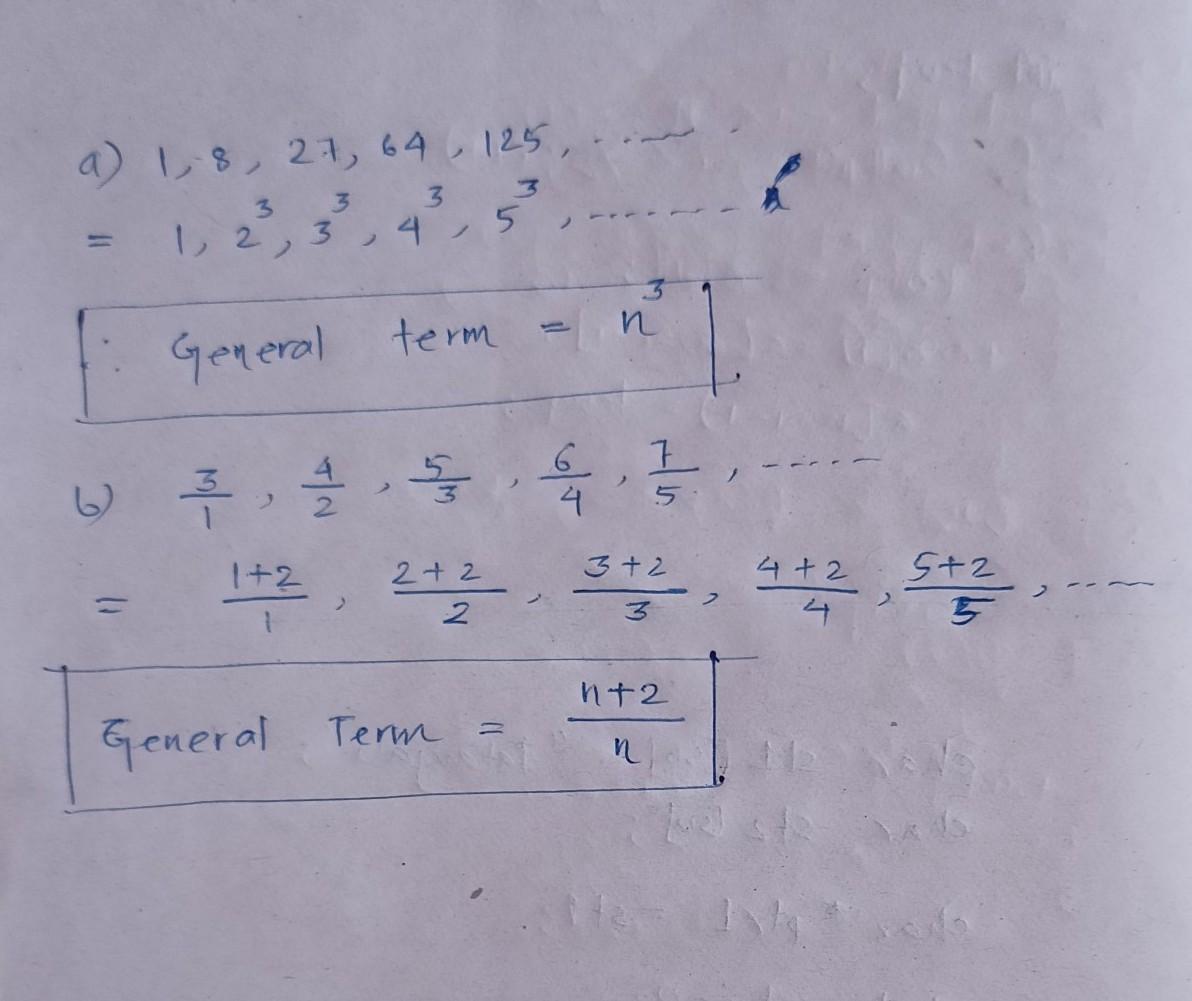 a) 1, 8, 27, 64, 125, ......
= 1, 2³, 3³, 4³, 5³, ........
∴ General term = n³
b) 3/1, 4/2, 5/3, 6/4, 7/5, ......
= 1+2/1, 2+2/2, 3+2/3, 4+2/4, 5+2/5, ......
General Term = n+2/n